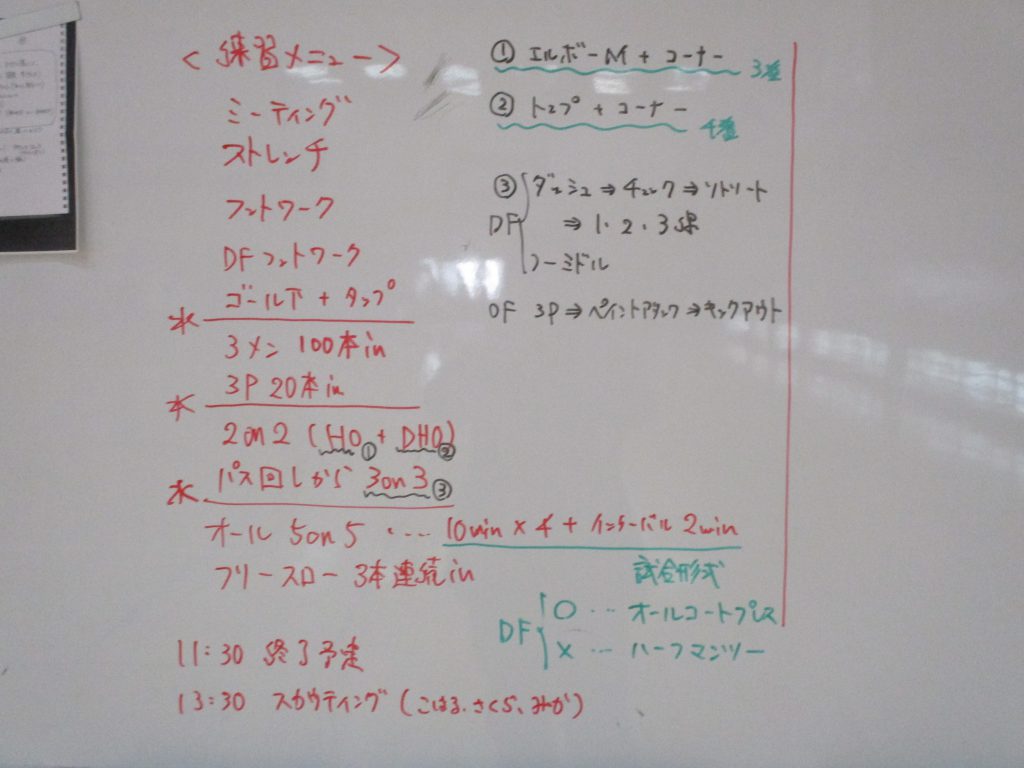 ＜練習メニュー＞
ミーティング
ストレッチ
フットワーク
DFフットワーク
ゴール下 + タップ
水
3メン 100本in
3P 20本in
水
2on2 (HO① + DHO②)
パス回しから 3on3③
水
オール 5on5 ・… 10min × 4 + インターバル 2min
試合形式
フリースロー 3本連続in
DF ○ … オールコートプレス
× … ハーフマンツー
11:30 終了予定
13:30 スカウティング (こはる、さくら、みか)
① エルボーM + コーナー 3種
② トップ + コーナー 4種
③ DF ダッシュ ⇒ チェック ⇒ ソトソート
⇒ 1・2・3線
ノーミドル
OF 3P ⇒ ペイントアタック ⇒ キックアウト